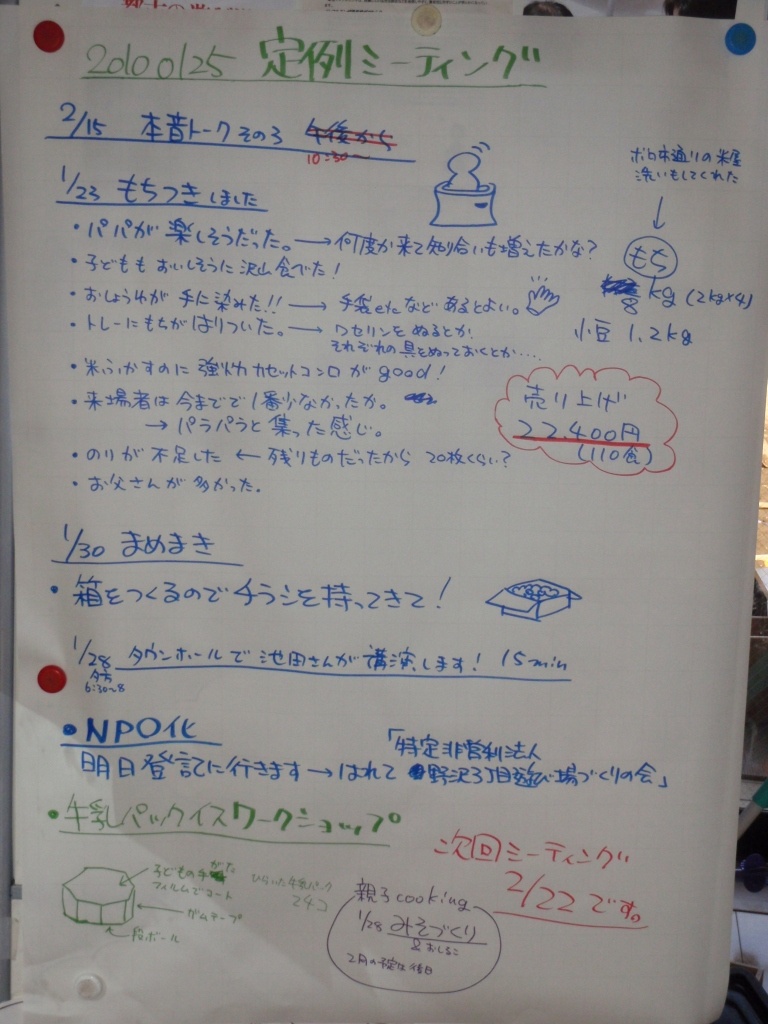 20100125 定例ミーティング
2/15 本音トークその3 午後から
10:30〜
1/23 もちつきしました
ボロ市通りの米屋
洗いもしてくれた
もち
8kg (2kg×4)
小豆 1.2kg
・パパが楽しそうだった。→何度か来て知り合いも増えたかな?
・子どももおいしそうに沢山食べた!
・おしょうゆが手に染みた!! → 手袋etcなどあるとよい。
・トレーにもちがはりついた。→ ワセリンをぬるとか
それぞれの具をぬっておくとか・・・・
・米ふかすのに強火力カセットコンロがgood!
・来場者は今までで1番少なかったか。
→ パラパラと集った感じ。
・のりが不足した ← 残りものだったから 20枚くらい?
・お父さんが多かった。
売り上げ
22.400円
(110食)
1/30 まめまき
・箱をつくるのでチラシを持ってきて!
1/28 タウンホールで池田さんが講演します! 15min
夕方
6:30〜8
・NPO化
明日登記に行きます→はれて「特定非営利法人
野沢3丁目遊び場づくりの会」
・牛乳パックイスワークショップ
子どもの手がた
フィルムでコート
ガムテープ
段ボール
ひらいた牛乳パック
24コ
親子cooking
1/28 みそづくり
&おしるこ
2月の予定は後日
次回ミーティング
2/22です。